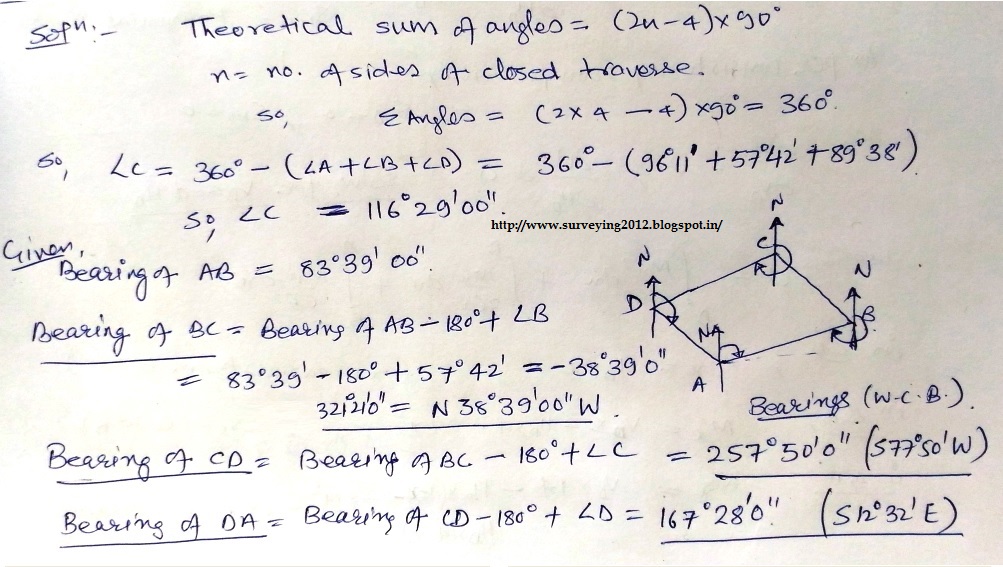 Sol^n:- Theoretical sum of angles = (2n-4)×90°
n= no. of sides of closed traverse.
so, Σ Angles = (2×4 - 4) ×90° = 360°.
so, ∠C = 360° - (∠A+∠B+∠D) = 360° - (96°11' + 57°42' + 89°38')
so, ∠C = 116°29'00".
http://www.surveying2012.blogspot.in/
Given,
Bearing of AB = 83°39'00".
Bearing of BC = Bearing of AB - 180° + ∠B
= 83°39' - 180° + 57°42' = -38°39'0"
321°21'0" = N 38°39'00" W.
N
C
N
D
N
B
NA
A
Bearings (W.C.B.).
Bearing of CD = Bearing of BC - 180° + ∠C = 257°50'0" (S77°50'W)
Bearing of DA = Bearing of CD - 180° + ∠D = 167°28'0" (S12°32'E)